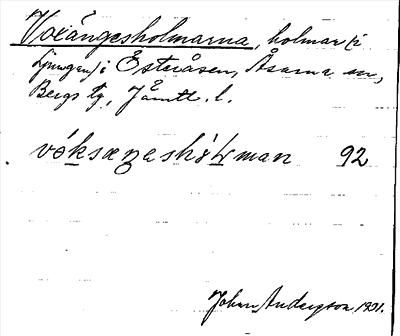 Voxängesholmarna, holmar (i
Ljungan) i Österåsen, Åsarna sn,
Bergs tg, Jämtl. l.
92
Johan Anderzson 1931.